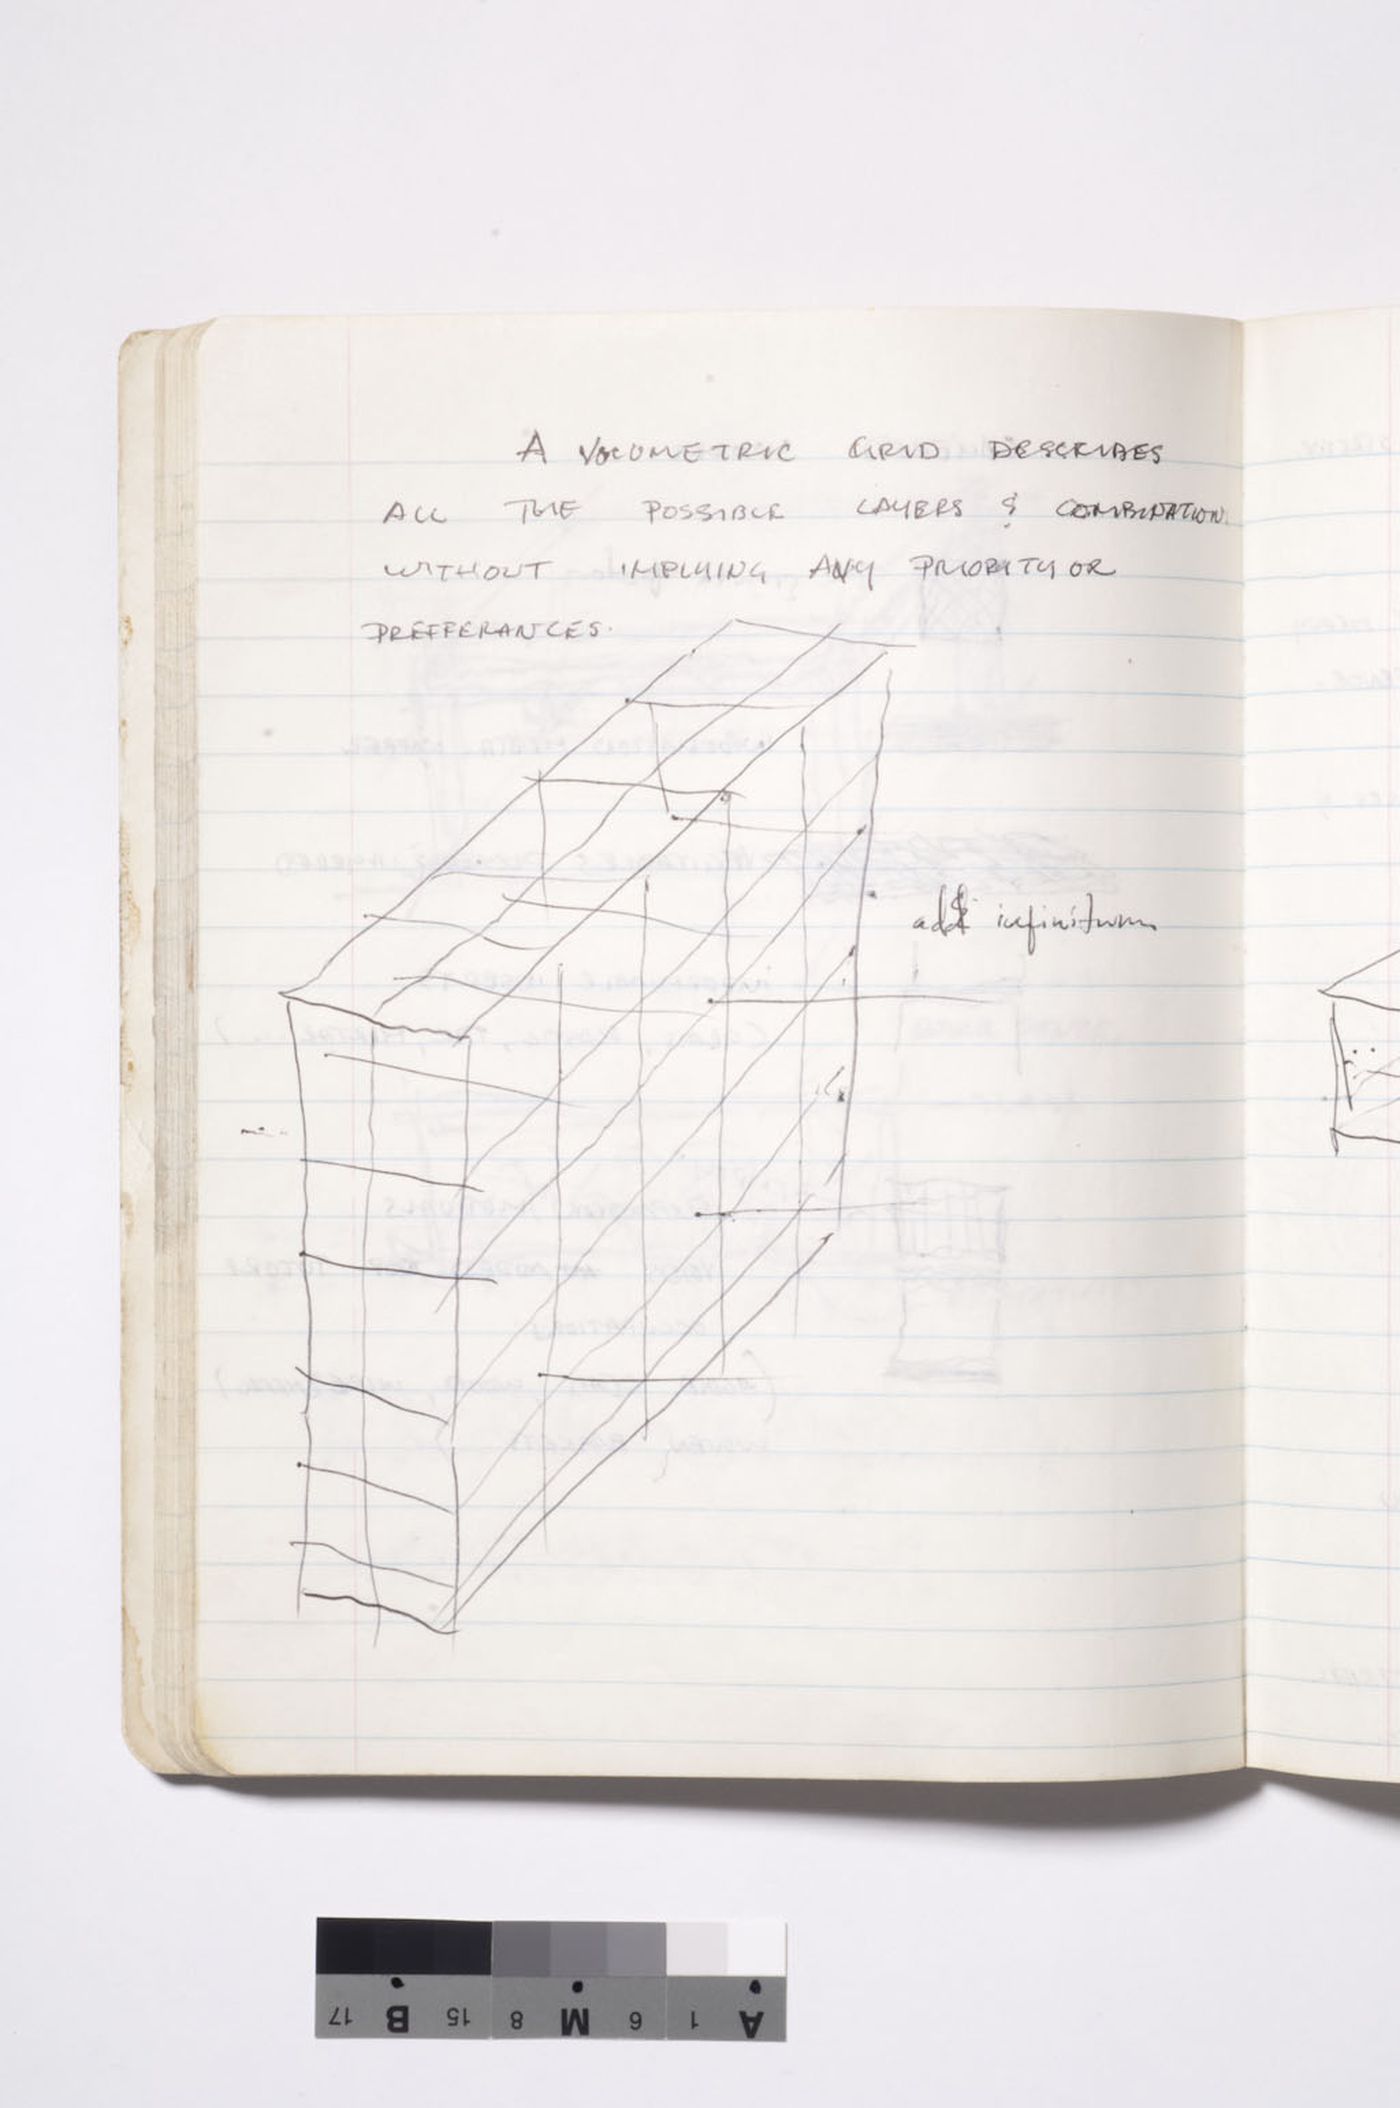 A VOLUMETRIC GRID DESCRIBES
ALL THE POSSIBLE LAYERS & COMBINATION
WITHOUT IMPLYING ANY PRIORITY OR
PREFFERANCES.
add infinitum
17 B 15 8 M 6 1 A